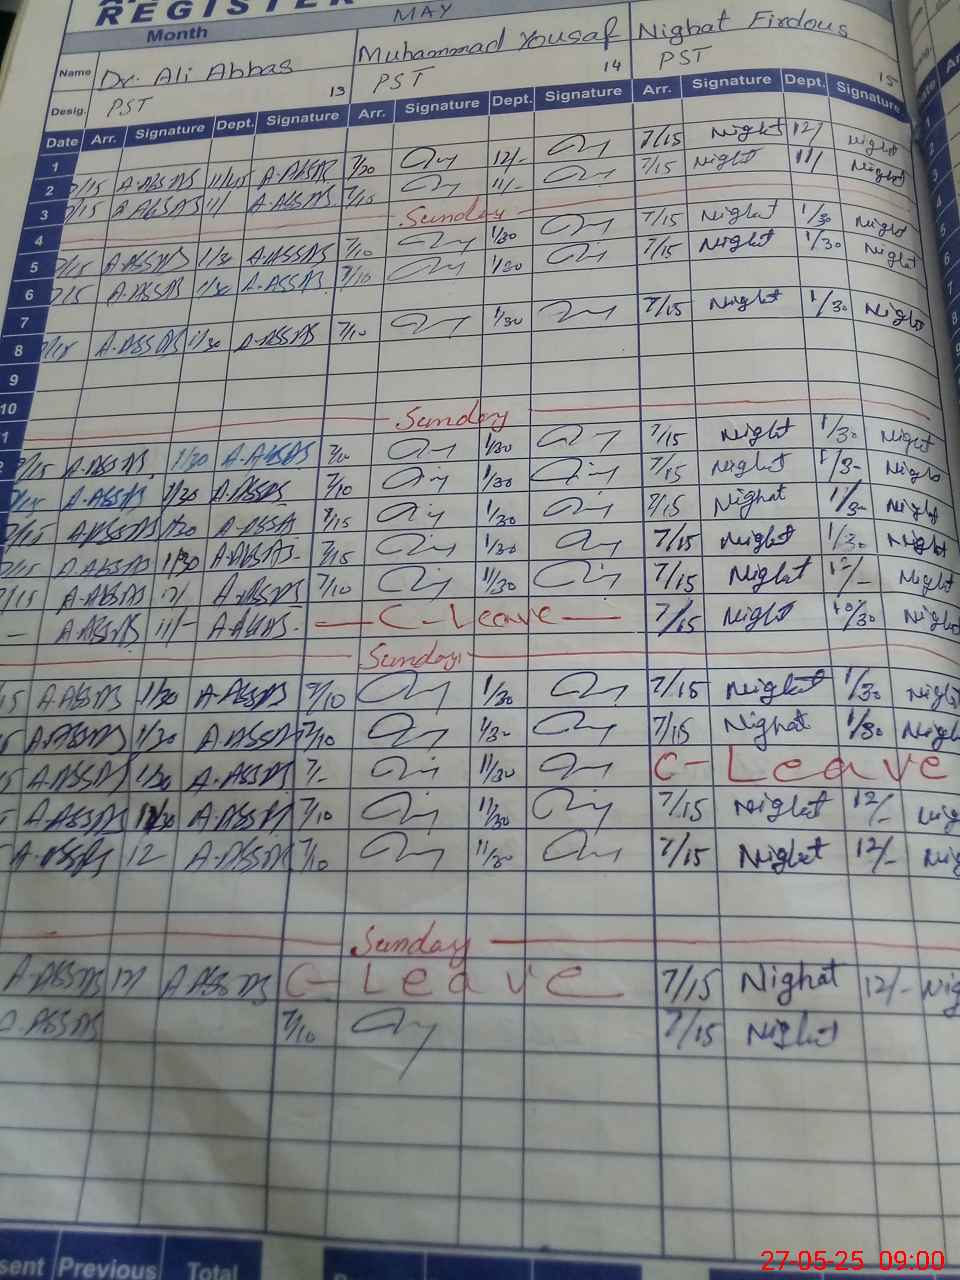 REGISTER
Month MAY
Name Dr. Ali Abbas Muhammad Yousaf Nighat Firdous
Desig. PST 13 PST 14 PST 15
Date Arr. Signature Dept. Signature Arr. Signature Dept. Signature Arr. Signature Dept. Signature
1 7/15 A-ABSAS 11/45 A-ABSAS 7/20 12/- 7/15 Nighat 12/ Nighat
2 7/15 A-ABSAS 11/ A-ABSAS 7/10 11/- 7/15 Nighat 11/ Nighat
3
4 Sunday
5 7/15 A-ABSAS 1/30 A-ABSAS 7/10 1/30 7/15 Nighat 1/30 Nighat
6 7/15 A-ABSAS 1/30 A-ABSAS 7/10 1/30 7/15 Nighat 1/30 Nighat
7
8 7/15 A-ABSAS 1/30 A-ABSAS 7/10 1/30 7/15 Nighat 1/30 Nighat
9
10
1 Sunday
2 7/15 A-ABSAS 1/30 A-ABSAS 7/10 1/30 7/15 Nighat 1/30 Nighat
7/15 A-ABSAS 1/30 A-ABSAS 7/10 1/30 7/15 Nighat 1/3- Nighat
7/15 A-ABSAS 1/30 A-ABSAS 7/15 1/30 7/15 Nighat 1/3- Nighat
7/15 A-ABSAS 1/30 A-ABSAS- 7/15 1/30 7/15 Nighat 1/30 Nighat
7/15 A-ABSAS 12/ A-ABSAS 7/10 11/30 7/15 Nighat 12/- Nighat
- A-ABSAS 11/- A-ABSAS- C-Leave 7/15 Nighat 10/30 Nighat
Sunday
15 A-ABSAS 1/30 A-ABSAS 7/10 1/30 7/15 Nighat 1/30 Nighat
5 A-ABSAS 1/30 A-ABSAS 7/10 1/30 7/15 Nighat 1/30 Nigh
5 A-ABSAS 1/30 A-ABSAS 7/- 11/30 C-Leave
5 A-ABSAS 11/30 A-ABSAS 7/10 11/30 7/15 Nighat 12/- Nig
A-ABSAS 12- A-ABSAS 7/10 11/30 7/15 Nighat 12/- Nig
Sunday
A-ABSAS 12/ A-ABSAS C-Leave 7/15 Nighat 12/- Nig
A-ABSAS 7/10 7/15 Nighat
sent Previous Total
27-05-25 09:00